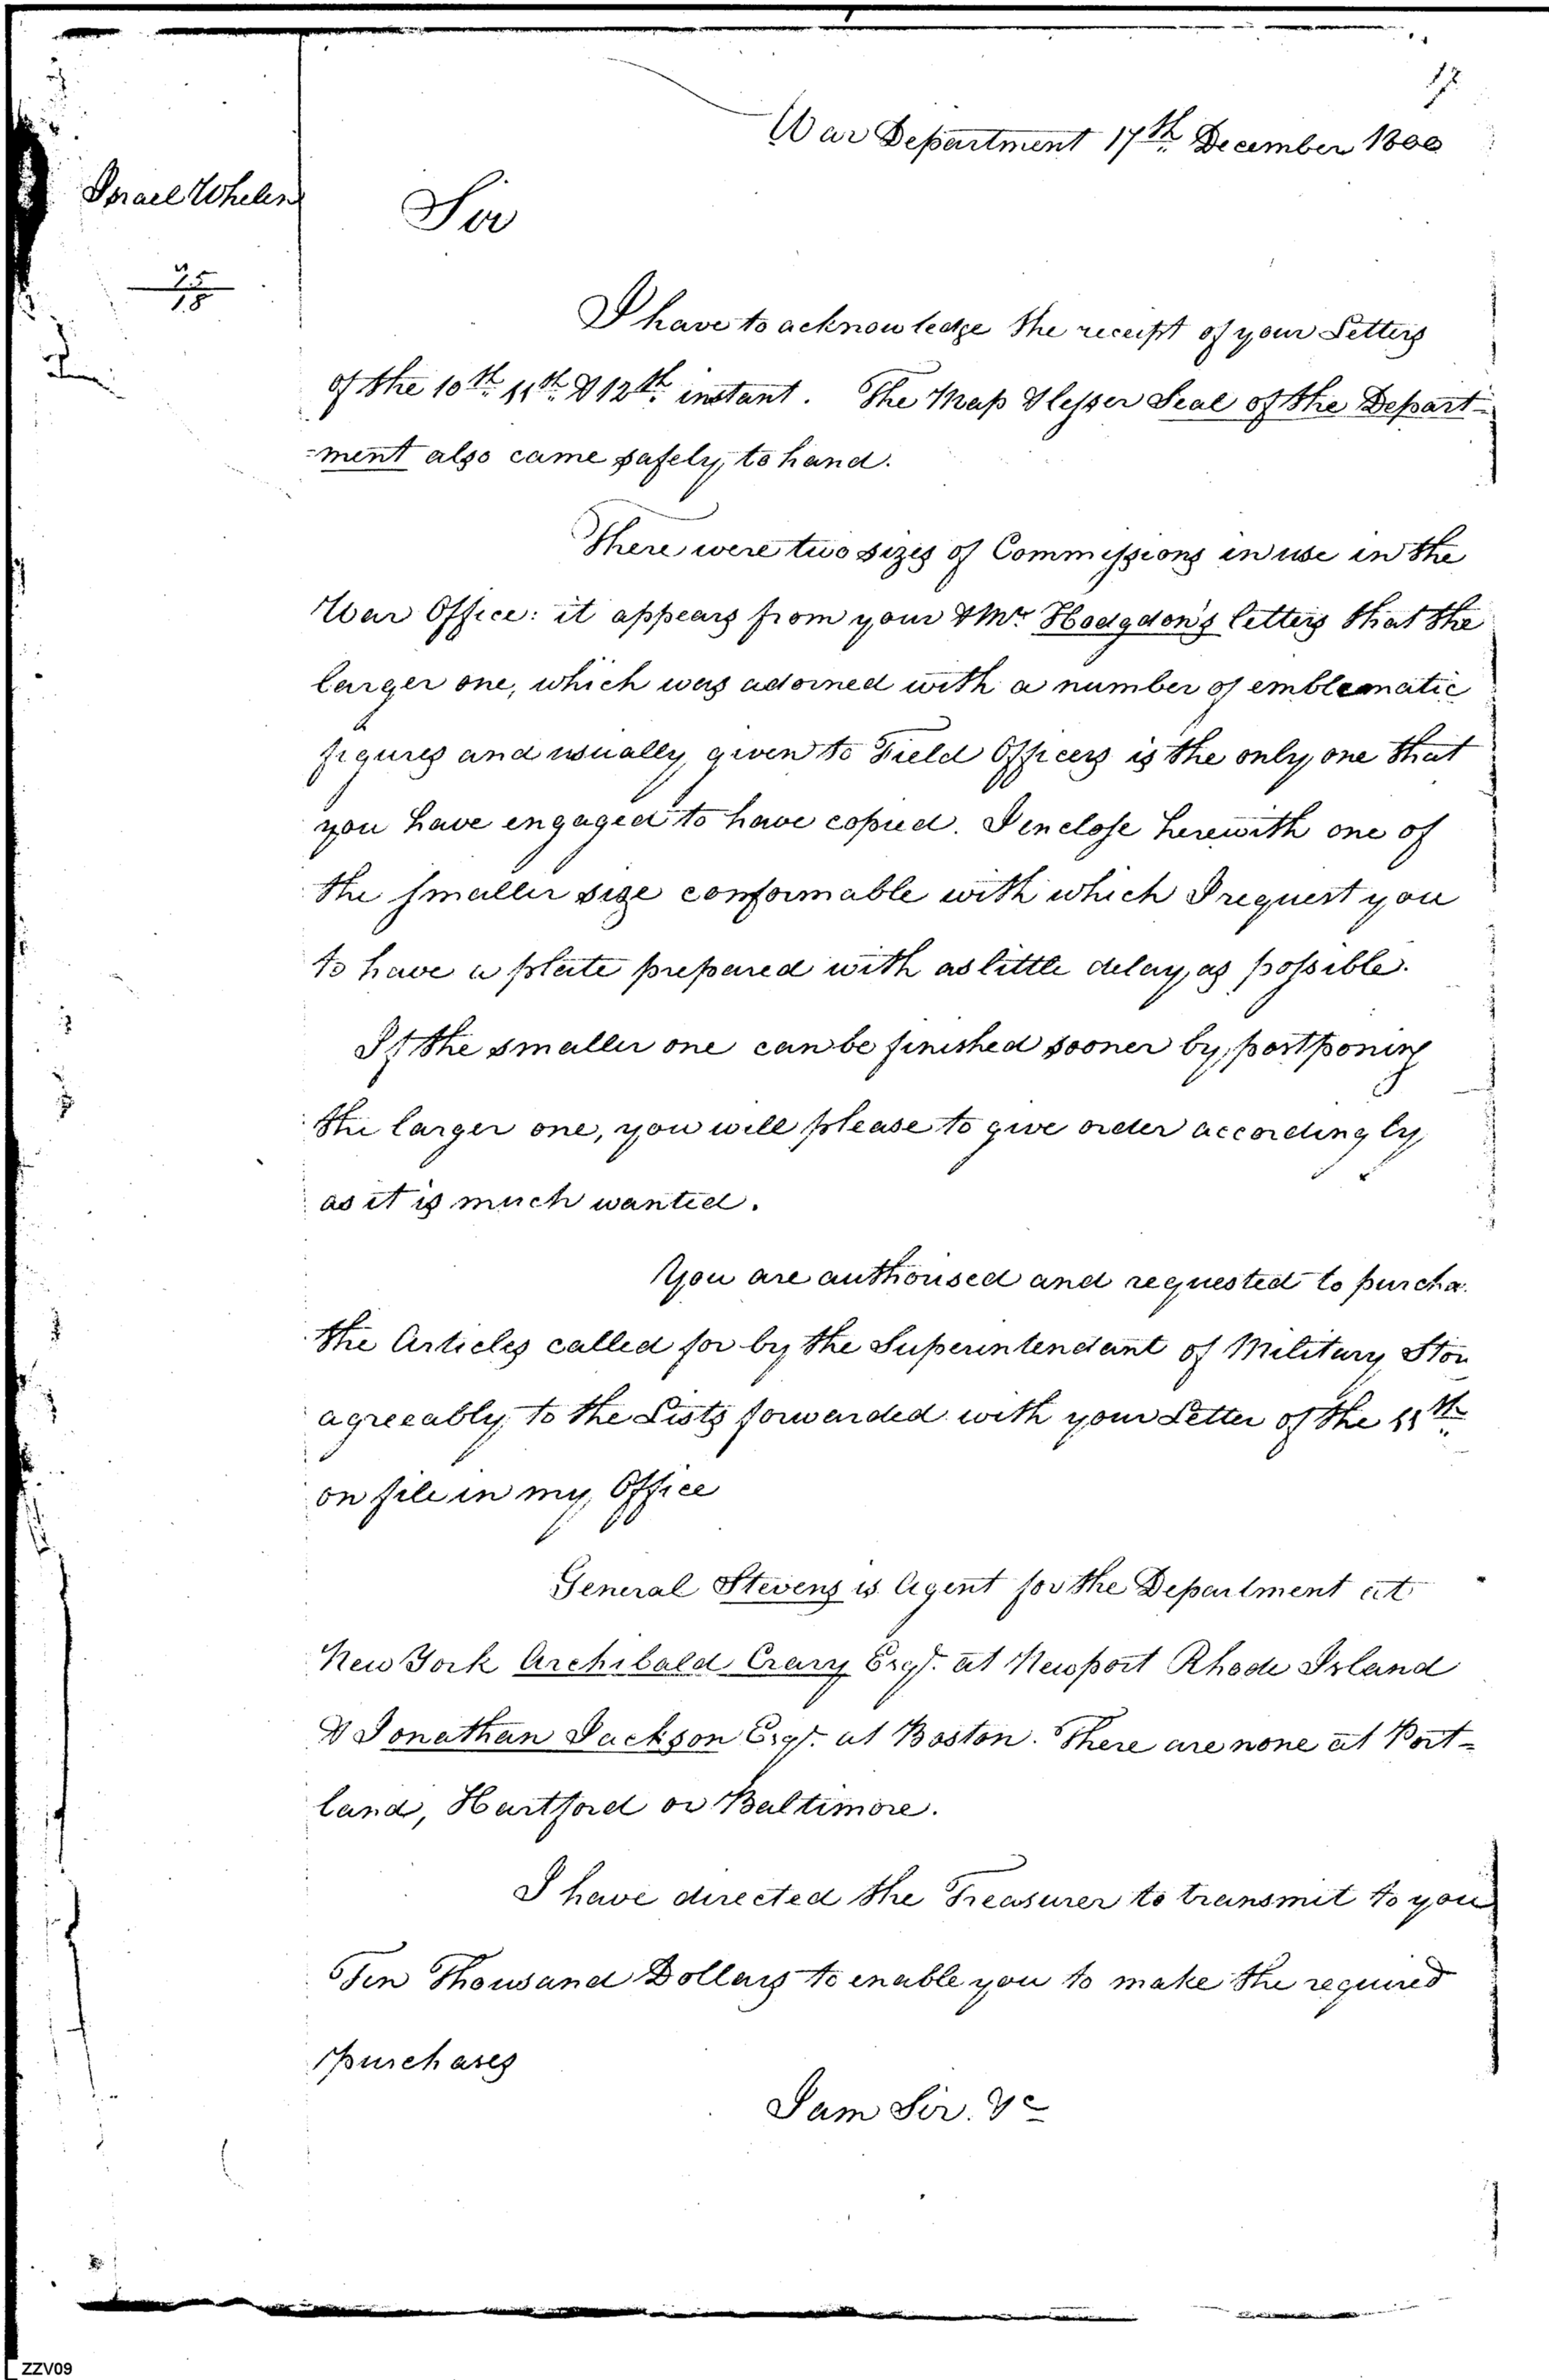 17
War Department 17th December 1800
Israel Whelen
Sir
25
18
I have to acknowledge the receipt of your Letters
of the 10th 11th & 12th instant. The Map & lesser Seal of the Depart-
-ment also came safely to hand.
There were two sizes of Commissions in use in the
War Office: it appears from your & Mr Hodgdon's letters that the
larger one, which was adorned with a number of emblematic
figures and usually given to Field Officers is the only one that
you have engaged to have copied. I enclose herewith one of
the smaller size conformable with which I request you
to have a plate prepared with as little delay as possible.
If the smaller one can be finished sooner by postponing
the larger one, you will please to give order accordingly
as it is much wanted.
You are authorised and requested to purcha
the Articles called for by the Superintendant of Military Stor
agreeably to the Lists forwarded with your Letter of the 11th
on file in my Office
General Stevens is Agent for the Department at
New York Archibald Crary Esqr. at Newport Rhode Island
& Jonathan Jackson Esqr. at Boston. There are none at Port-
land, Hartford or Baltimore.
I have directed the Treasurer to transmit to you
Ten Thousand Dollars to enable you to make the required
purchases
I am Sir. &c
ZZV09